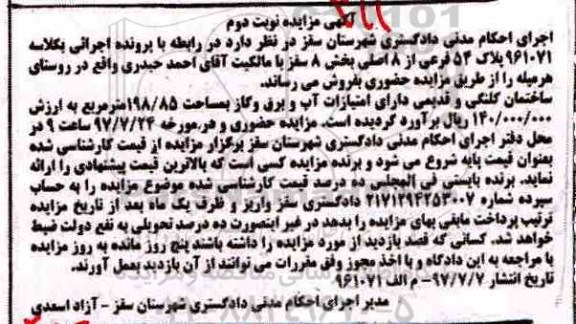 آگهی مزایده نوبت دوم
اجرای احکام مدنی دادگستری شهرستان سقز در نظر دارد در رابطه با پرونده اجرائی بکلاسه
۹۶۱۰۷۱ پلاک ۵۴ فرعی از ۸ اصلی بخش ۸ سقز با مالکیت آقای احمد حیدری واقع در روستای
هرمیله را از طریق مزایده حضوری بفروش می رساند.
ساختمان کلنگی و قدیمی دارای امتیازات آب و برق وگاز بمساحت ۱۹۸/۸۵مترمربع به ارزش
۱۴۰/۰۰۰/۰۰۰ ریال برآورد گردیده است. مزایده حضوری و در مورخه ۹۷/۷/۲۴ ساعت ۹ در
محل دفتر اجرای احکام مدنی دادگستری شهرستان سقز برگزار مزایده از قیمت کارشناسی شده
بعنوان قیمت پایه شروع می شود و برنده مزایده کسی است که بالاترین قیمت پیشنهادی را ارائه
نماید. برنده بایستی فی المجلس ده درصد قیمت کارشناسی شده موضوع مزایده را به حساب
سپرده شماره ۲۱۷۱۲۹۴۲۵۳۰۰۷ دادگستری سقز واریز و ظرف یک ماه بعد از تاریخ مزایده
ترتیب پرداخت مابقی بهای مزایده را بدهد در غیر اینصورت ده درصد تحویلی به نفع دولت ضبط
خواهد شد. کسانی که قصد بازدید از مورد مزایده را داشته باشند پنج روز مانده به روز مزایده
با مراجعه به این دادگاه و با اخذ مجوز وفق مقررات می توانند از آن بازدید بعمل آورند.
تاریخ انتشار ۹۷/۷/۷- م الف ۹۶۱۰۷۱
مدیر اجرای احکام مدنی دادگستری شهرستان سقز - آزاد اسعدی